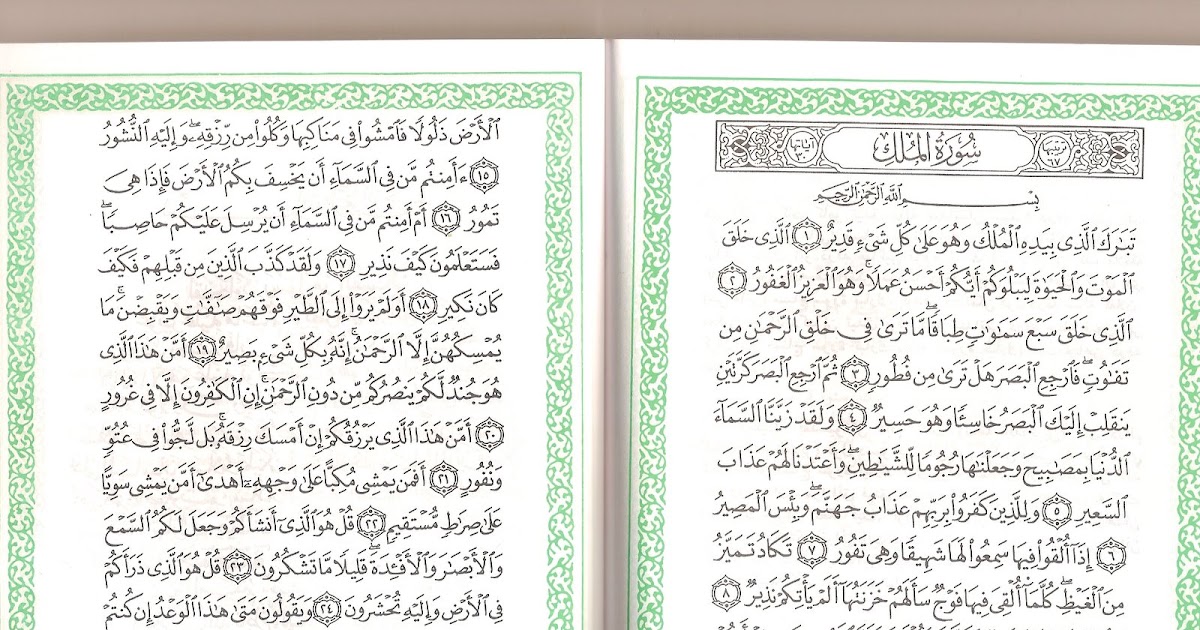 ترتيبها ٦٧ سُورَةُ المُلكِ آياتها ٣٠
بِسْمِ اللَّهِ الرَّحْمَٰنِ الرَّحِيمِ
تَبَٰرَكَ ٱلَّذِى بِيَدِهِ ٱلْمُلْكُ وَهُوَ عَلَىٰ كُلِّ شَىْءٍ قَدِيرٌ ١ ٱلَّذِى خَلَقَ
ٱلْمَوْتَ وَٱلْحَيَوٰةَ لِيَبْلُوَكُمْ أَيُّكُمْ أَحْسَنُ عَمَلًا ۚ وَهُوَ ٱلْعَزِيزُ ٱلْغَفُورُ ٢
ٱلَّذِى خَلَقَ سَبْعَ سَمَٰوَٰتٍ طِبَاقًا ۖ مَّا تَرَىٰ فِى خَلْقِ ٱلرَّحْمَٰنِ مِن
تَفَٰوُتٍ ۖ فَٱرْجِعِ ٱلْبَصَرَ هَلْ تَرَىٰ مِن فُطُورٍ ٣ ثُمَّ ٱرْجِعِ ٱلْبَصَرَ كَرَّتَيْنِ
يَنقَلِبْ إِلَيْكَ ٱلْبَصَرُ خَاسِئًا وَهُوَ حَسِيرٌ ٤ وَلَقَدْ زَيَّنَّا ٱلسَّمَآءَ
ٱلدُّنْيَا بِمَصَٰبِيحَ وَجَعَلْنَٰهَا رُجُومًا لِّلشَّيَٰطِينِ ۖ وَأَعْتَدْنَا لَهُمْ عَذَابَ
ٱلسَّعِيرِ ٥ وَلِلَّذِينَ كَفَرُوا۟ بِرَبِّهِمْ عَذَابُ جَهَنَّمَ ۖ وَبِئْسَ ٱلْمَصِيرُ
٦ إِذَآ أُلْقُوا۟ فِيهَا سَمِعُوا۟ لَهَا شَهِيقًا وَهِىَ تَفُورُ ٧ تَكَادُ تَمَيَّزُ
مِنَ ٱلْغَيْظِ ۖ كُلَّمَآ أُلْقِىَ فِيهَا فَوْجٌ سَأَلَهُمْ خَزَنَتُهَآ أَلَمْ يَأْتِكُمْ نَذِيرٌ ٨
ٱلْأَرْضَ ذَلُولًا فَٱمْشُوا۟ فِى مَنَاكِبِهَا وَكُلُوا۟ مِن رِّزْقِهِۦ ۖ وَإِلَيْهِ ٱلنُّشُورُ
١٥ ءَأَمِنتُم مَّن فِى ٱلسَّمَآءِ أَن يَخْسِفَ بِكُمُ ٱلْأَرْضَ فَإِذَا هِىَ
تَمُورُ ١٦ أَمْ أَمِنتُم مَّن فِى ٱلسَّمَآءِ أَن يُرْسِلَ عَلَيْكُمْ حَاصِبًا ۖ
فَسَتَعْلَمُونَ كَيْفَ نَذِيرِ ١٧ وَلَقَدْ كَذَّبَ ٱلَّذِينَ مِن قَبْلِهِمْ فَكَيْفَ
كَانَ نَكِيرِ ١٨ أَوَلَمْ يَرَوْا۟ إِلَى ٱلطَّيْرِ فَوْقَهُمْ صَٰٓفَّٰتٍ وَيَقْبِضْنَ ۚ مَا
يُمْسِكُهُنَّ إِلَّا ٱلرَّحْمَٰنُ ۚ إِنَّهُۥ بِكُلِّ شَىْءٍۭ بَصِيرٌ ١٩ أَمَّنْ هَٰذَا ٱلَّذِى
هُوَ جُندٌ لَّكُمْ يَنصُرُكُم مِّن دُونِ ٱلرَّحْمَٰنِ ۚ إِنِ ٱلْكَٰفِرُونَ إِلَّا فِى غُرُورٍ
٢٠ أَمَّنْ هَٰذَا ٱلَّذِى يَرْزُقُكُمْ إِنْ أَمْسَكَ رِزْقَهُۥ ۚ بَل لَّجُّوا۟ فِى عُتُوٍّ
وَنُفُورٍ ٢١ أَفَمَن يَمْشِى مُكِبًّا عَلَىٰ وَجْهِهِۦٓ أَهْدَىٰٓ أَمَّن يَمْشِى سَوِيًّا
عَلَىٰ صِرَٰطٍ مُّسْتَقِيمٍ ٢٢ قُلْ هُوَ ٱلَّذِىٓ أَنشَأَكُمْ وَجَعَلَ لَكُمُ ٱلسَّمْعَ
وَٱلْأَبْصَٰرَ وَٱلْأَفْـِٔدَةَ ۖ قَلِيلًا مَّا تَشْكُرُونَ ٢٣ قُلْ هُوَ ٱلَّذِى ذَرَأَكُمْ
فِى ٱلْأَرْضِ وَإِلَيْهِ تُحْشَرُونَ ٢٤ وَيَقُولُونَ مَتَىٰ هَٰذَا ٱلْوَعْدُ إِن كُنتُمْ